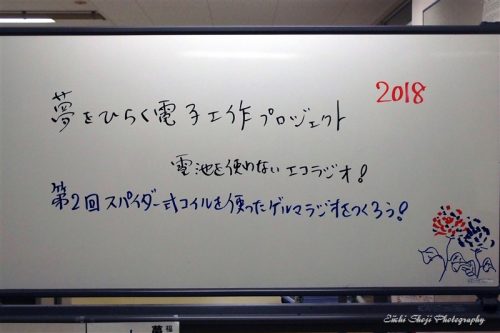 2018
夢をひらく電子工作プロジェクト
電池を使わないエコラジオ!
第2回スパイダー式コイルを使ったゲルマラジオをつくろう!
Eiichi Shoji Photography